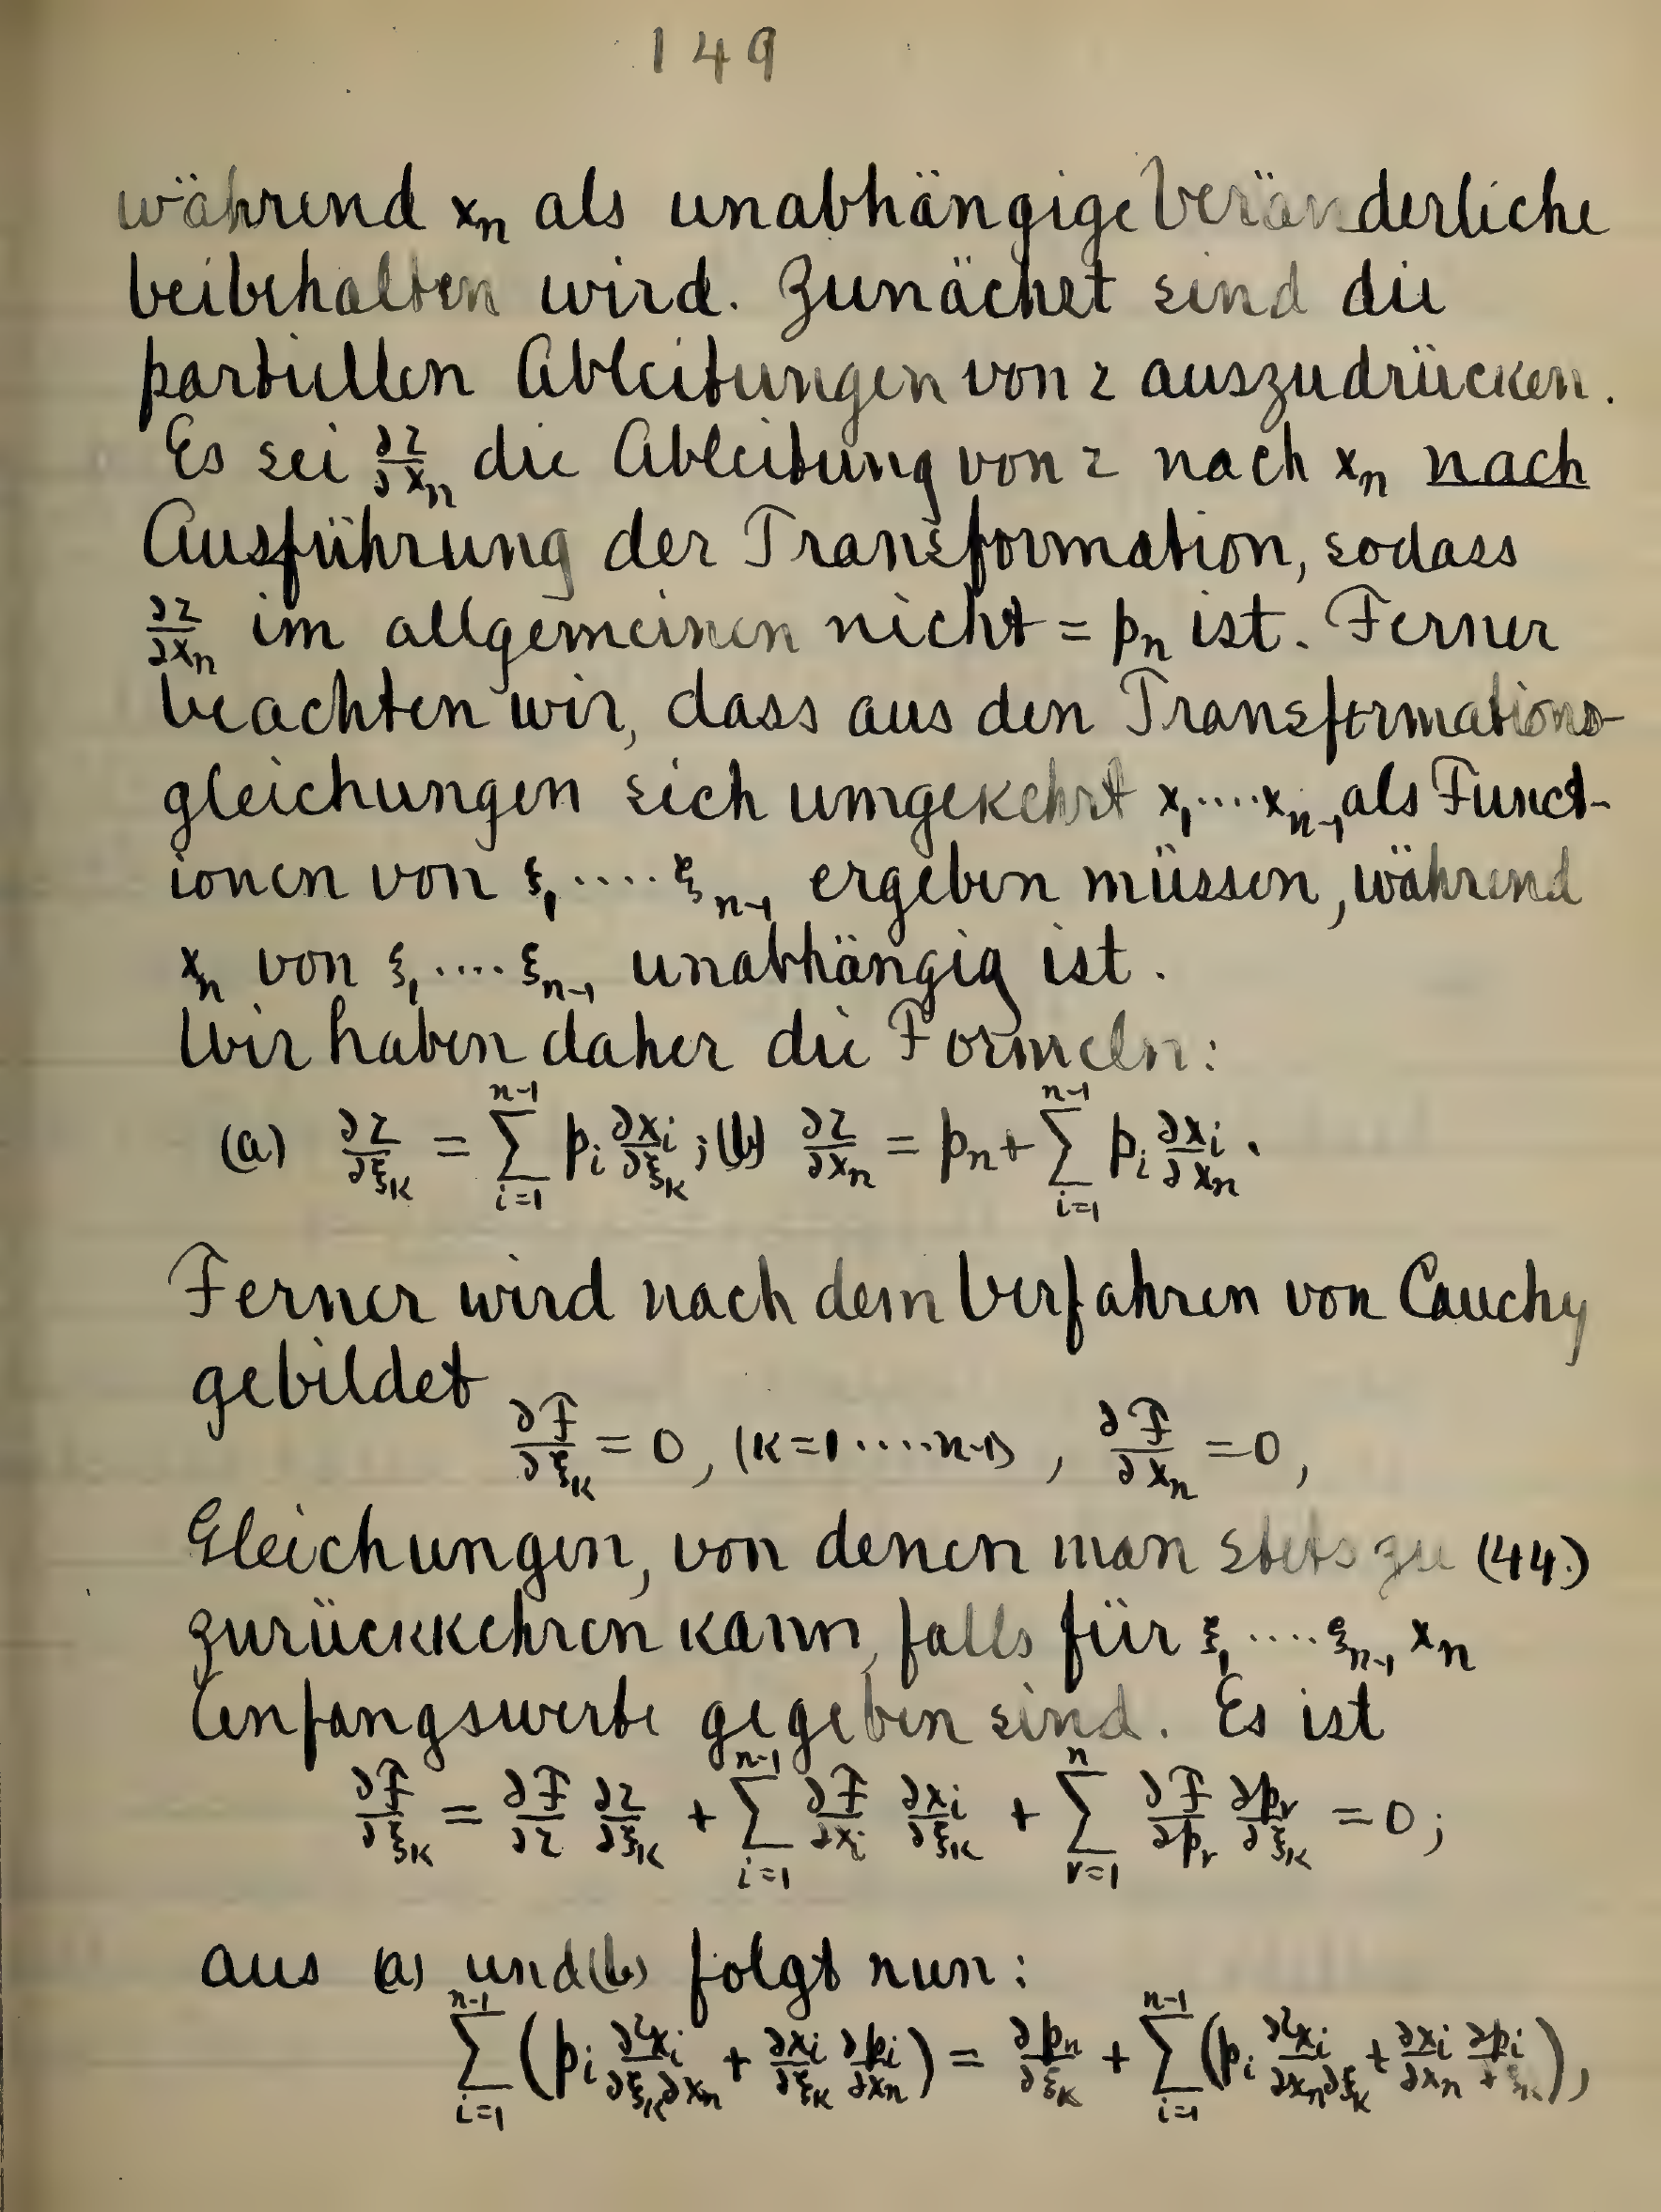 149
während xₙ als unabhängige Veränderliche
beibehalten wird. Zunächst sind die
partiellen Ableitungen von z auszudrücken.
Es sei ∂z/∂xₙ die Ableitung von z nach xₙ nach
Ausführung der Transformation, sodass
∂z/∂xₙ im allgemeinen nicht = pₙ ist. Ferner
beachten wir, dass aus den Transformations-
gleichungen sich umgekehrt x₁....xₙ₋₁ als Funct-
ionen von ξ₁....ξₙ₋₁ ergeben müssen, während
xₙ von ξ₁....ξₙ₋₁ unabhängig ist.
Wir haben daher die Formeln:
(a) ∂z/∂ξₖ = ∑_{i=1}^{n-1} pᵢ ∂xᵢ/∂ξₖ ; (b) ∂z/∂xₙ = pₙ + ∑_{i=1}^{n-1} pᵢ ∂xᵢ/∂xₙ.
Ferner wird nach dem Verfahren von Cauchy
gebildet
∂F/∂ξₖ = 0, (k=1....n-1), ∂F/∂xₙ = 0,
Gleichungen, von denen man stets zu (44.)
zurückkehren kann, falls für ξ₁....ξₙ₋₁, xₙ
Anfangswerte gegeben sind. Es ist
∂F/∂ξₖ = ∂F/∂z ∂z/∂ξₖ + ∑_{i=1}^{n-1} ∂F/∂xᵢ ∂xᵢ/∂ξₖ + ∑_{r=1}^{n} ∂F/∂pᵣ ∂pᵣ/∂ξₖ = 0;
aus (a) und (b) folgt nun:
∑_{i=1}^{n-1} (pᵢ ∂²xᵢ/∂ξₖ∂xₙ + ∂xᵢ/∂ξₖ ∂pᵢ/∂xₙ) = ∂pₙ/∂ξₖ + ∑_{i=1}^{n-1} (pᵢ ∂²xᵢ/∂xₙ∂ξₖ + ∂xᵢ/∂xₙ ∂pᵢ/∂ξₖ),